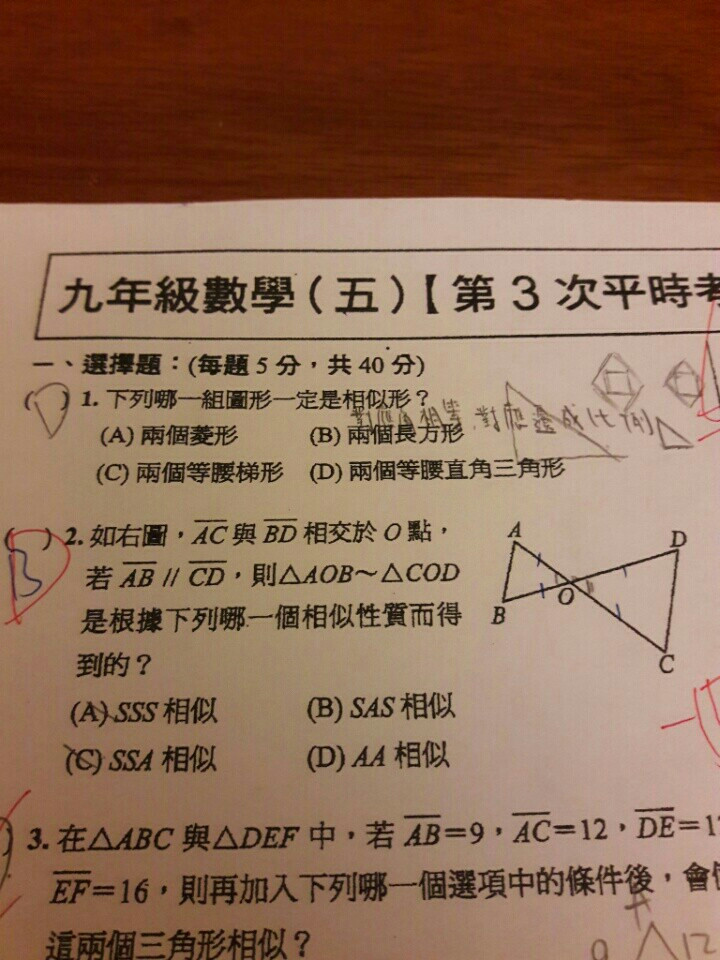 九年級數學(五)【第3次平時考
一、選擇題：(每題5分，共40分)
(D) 1. 下列哪一組圖形一定是相似形？
對應角相等 對應邊成比例
(A) 兩個菱形 (B) 兩個長方形
(C) 兩個等腰梯形 (D) 兩個等腰直角三角形
(B) 2. 如右圖，AC與BD相交於O點，
若AB // CD，則△AOB～△COD
是根據下列哪一個相似性質而得
到的？
A
D
B
O
C
(A) SSS相似 (B) SAS相似
(C) SSA相似 (D) AA相似
) 3. 在△ABC與△DEF中，若AB=9，AC=12，DE=1
EF=16，則再加入下列哪一個選項中的條件後，會
這兩個三角形相似？
A
9 12